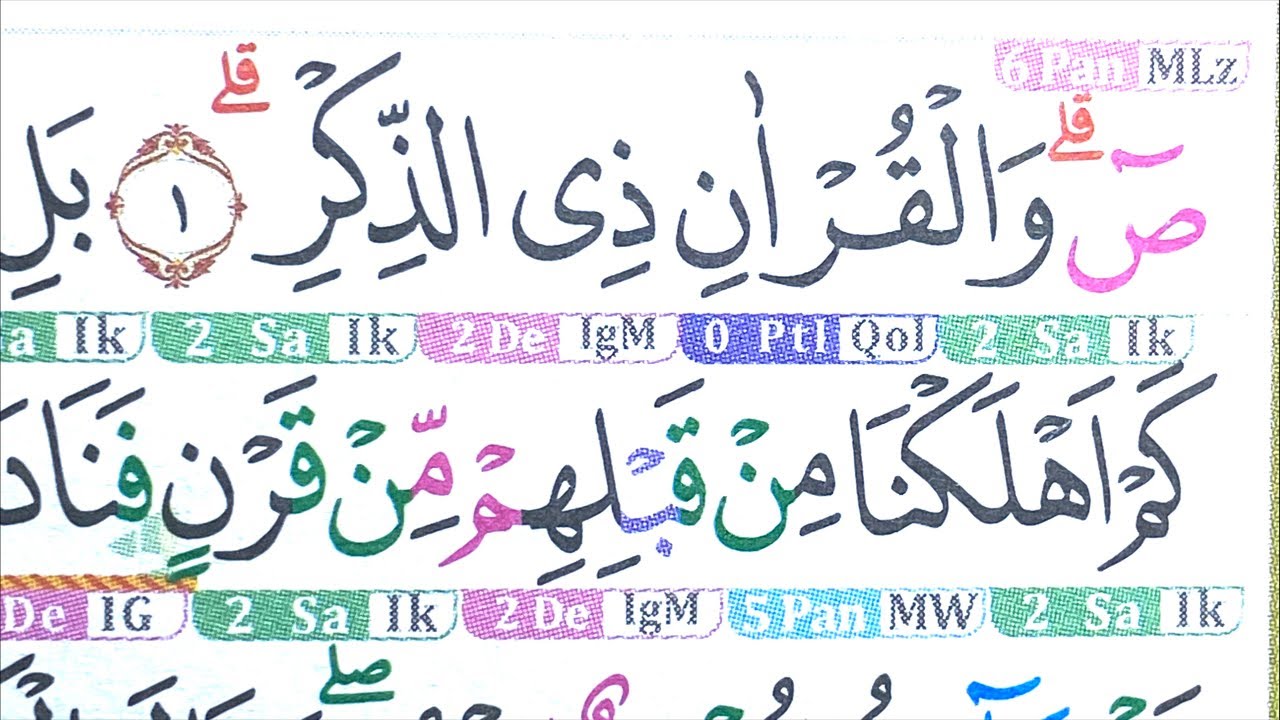 6 Pan MLz
صۤ ۗ وَالْقُرْاٰنِ ذِى الذِّكْرِ ۗ ١ بَلِ
a Ik 2 Sa Ik 2 De IgM 0 Ptl Qol 2 Sa Ik
كَمْ اَهْلَكْنَا مِنْ قَبْلِهِمْ مِّنْ قَرْنٍ فَنَادَ
De IG 2 Sa Ik 2 De IgM 5 Pan MW 2 Sa Ik